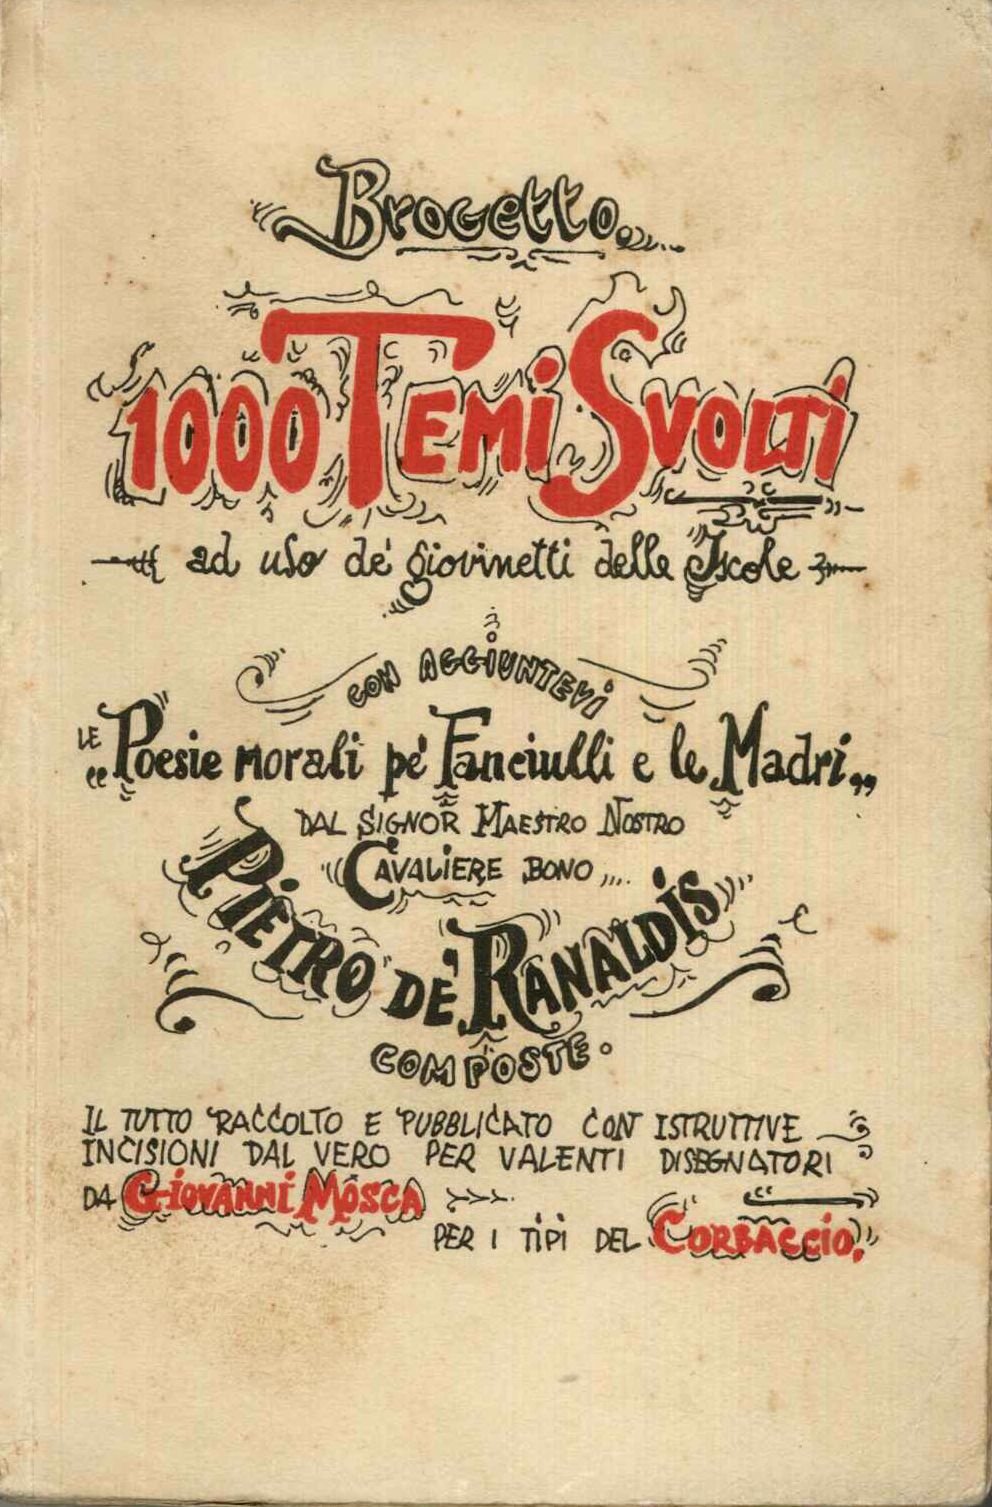 Brogetto
1000 TEMI SVOLTI
ad uso de' giovinetti delle Iscole
CON AGGIUNTEVI
LE "Poesie morali pe' Fanciulli e le Madri"
DAL SIGNOR MAESTRO NOSTRO
CAVALIERE BONO ....
PIETRO DE' RANALDIS
COMPOSTE.
IL TUTTO RACCOLTO E PUBBLICATO CON ISTRUTTIVE
INCISIONI DAL VERO PER VALENTI DISEGNATORI
DA GIOVANNI MOSCA
PER I TIPI DEL CORBACCIO.